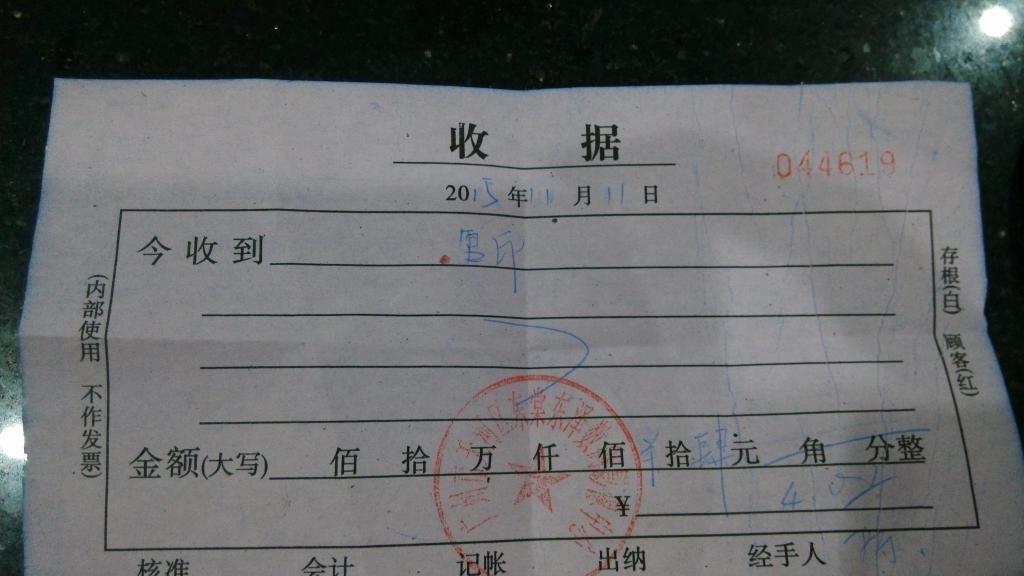 收 据
044619
2015年11月11日
今收到 复印
金额(大写) 佰 拾 万 仟 佰 拾 肆 元 角 分整
¥ 4.0
核准 会计 记帐 出纳 经手人
(内部使用 不作发票)
存根(白) 顾客(红)